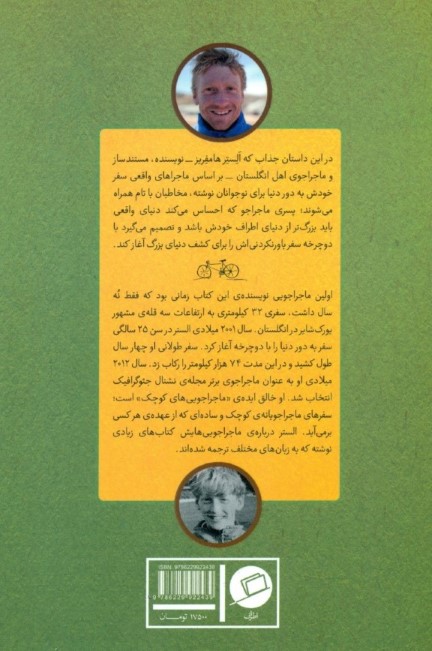 در این داستان جذاب که اَلِستِر هامفِریز ــ نویسنده، مستندساز
و ماجراجوی اهل انگلستان ــ بر اساس ماجراهای واقعی سفر
خودش به دور دنیا برای نوجوانان نوشته، مخاطبان با تام همراه
می‌شوند؛ پسری ماجراجو که احساس می‌کند دنیای واقعی
باید بزرگ‌تر از دنیای اطراف خودش باشد و تصمیم می‌گیرد با
دوچرخه سفر باورنکردنی‌اش را برای کشف دنیای بزرگ آغاز کند.
اولین ماجراجویی نویسنده‌ی این کتاب زمانی بود که فقط نُه
سال داشت، سفری ۳۲ کیلومتری به ارتفاعات سه قله‌ی مشهور
یورک‌شایر در انگلستان. سال ۲۰۰۱ میلادی الستر در سن ۲۵ سالگی
سفر به دور دنیا را با دوچرخه آغاز کرد. سفر طولانی او چهار سال
طول کشید و در این مدت ۷۴ هزار کیلومتر را رکاب زد. سال ۲۰۱۲
میلادی او به عنوان ماجراجوی برتر مجله‌ی نشنال جئوگرافیک
انتخاب شد. او خالق ایده‌ی «ماجراجویی‌های کوچک» است؛
سفرهای ماجراجویانه‌ی کوچک و ساده‌ای که از عهده‌ی هر کسی
برمی‌آید. الستر درباره‌ی ماجراجویی‌هایش کتاب‌های زیادی
نوشته که به زبان‌های مختلف ترجمه شده‌اند.
ISBN: 9786226022439
9 786226 022439
۲۷۵۰۰ تومان
اطراف